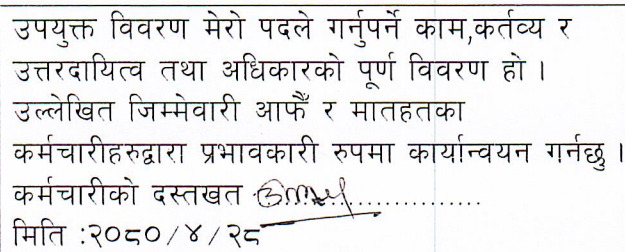 उपयुक्त विवरण मेरो पदले गर्नुपर्ने काम,कर्तव्य र
उत्तरदायित्व तथा अधिकारको पूर्ण विवरण हो ।
उल्लेखित जिम्मेवारी आफैँ र मातहतका
कर्मचारीहरुद्वारा प्रभावकारी रुपमा कार्यान्वयन गर्नेछु ।
कर्मचारीको दस्तखत ......................
मिति :२०८०/४/२८